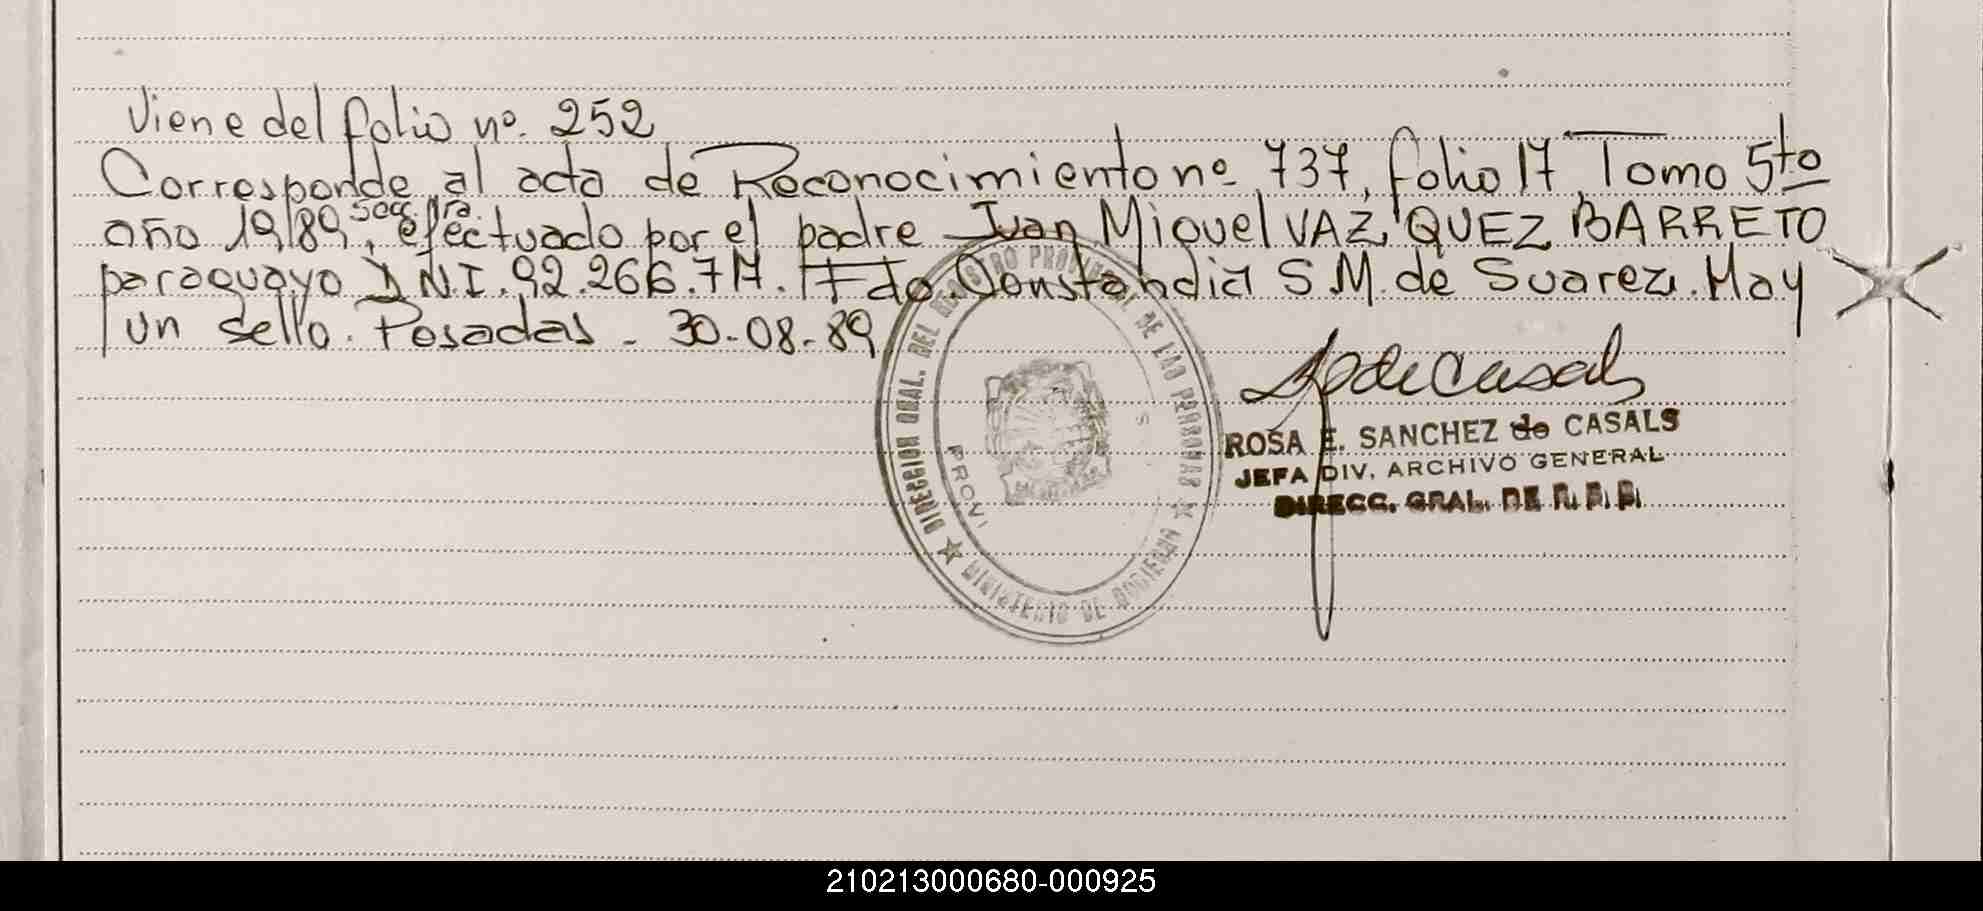 Viene del folio nº. 252
Corresponde al acta de Reconocimiento nº 737, folio 17, Tomo 5to
año 1989, Secc. 1ra. efectuado por el padre Juan Miguel VAZQUEZ BARRETO
paraguayo D.N.I. 92.266.717. Fdo. Constandia S.M. de Suarez. Hay
un sello. Posadas - 30-08-89
DIRECCION GRAL. DEL REGISTRO PROVINCIAL DE LAS PERSONAS ★
★ MINISTERIO DE GOBIERNO
ROSA E. SANCHEZ de CASALS
JEFA DIV. ARCHIVO GENERAL
DIRECC. GRAL. DE R. P. P.
210213000680-000925